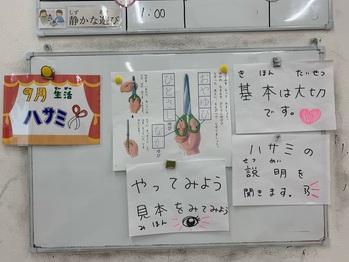 しず
静かな遊び
1.00
9月 生活
ハサミ
おやゆび
ひとさし
なか
き ほん たいせつ
基本は大切
です。
ハサミの
せつ めい
説明を
聞きます。
やってみよう
見本をみてみよう
み ほん